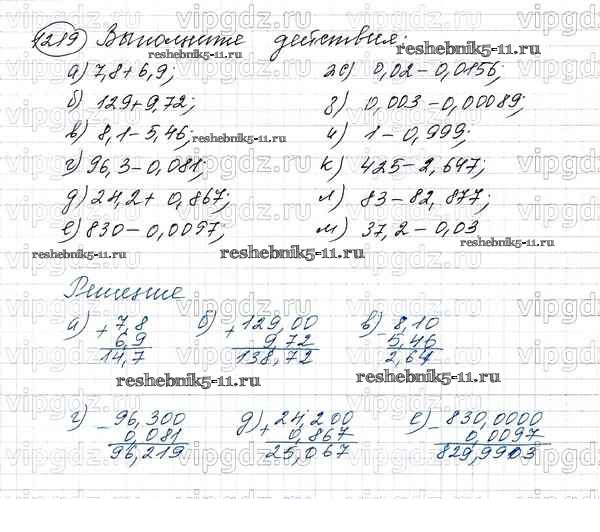 1219 Выполните действия:
а) 7,8+6,9; ж) 0,02-0,0156;
б) 129+9,72; з) 0,003-0,00089;
в) 8,1-5,46; и) 1-0,999;
г) 96,3-0,081; к) 425-2,647;
д) 24,2+0,867; л) 83-82,877;
е) 830-0,0097; м) 37,2-0,03
Решение
а) + 7,8 б) + 129,00 в) - 8,10
6,9 9,72 5,46
14,7 138,72 2,64
г) - 96,300 д) + 24,200 е) - 830,0000
0,081 0,867 0,0097
96,219 25,067 829,9903
reshebnik5-11.ru
reshebnik5-11.ru
reshebnik5-11.ru
reshebnik5-11.ru
reshebnik5-11.ru
reshebnik5-11.ru
reshebnik5-11.ru
reshebnik5-11.ru
vipgdz.ru